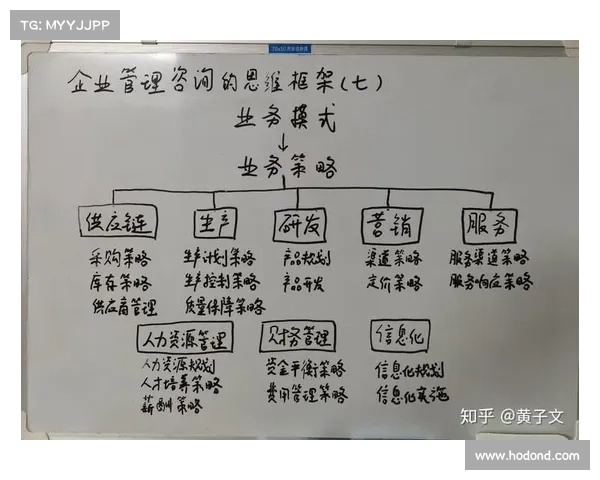 TG: MYYJJPP
企业管理咨询的思维框架(七)
业务模式
↓
业务策略
供应链 生产 研发 营销 服务
采购策略 生产计划策略 产品规划 渠道策略 服务渠道策略
库存策略 生产控制策略 产品开发 定价策略 服务响应策略
供应商管理 质量保障策略
人力资源管理 财务管理 信息化
人力资源规划 资金平衡策略 信息化规划
人才培养策略 费用管理策略 信息化实施
薪酬策略
知乎 @黄子文
www.hodond.com